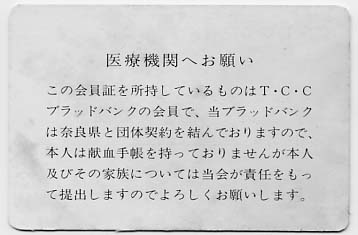 医療機関へお願い
この会員証を所持しているものはT・C・C
ブラッドバンクの会員で、当ブラッドバンク
は奈良県と団体契約を結んでおりますので、
本人は献血手帳を持っておりませんが本人
及びその家族については当会が責任をもっ
て提出しますのでよろしくお願いします。